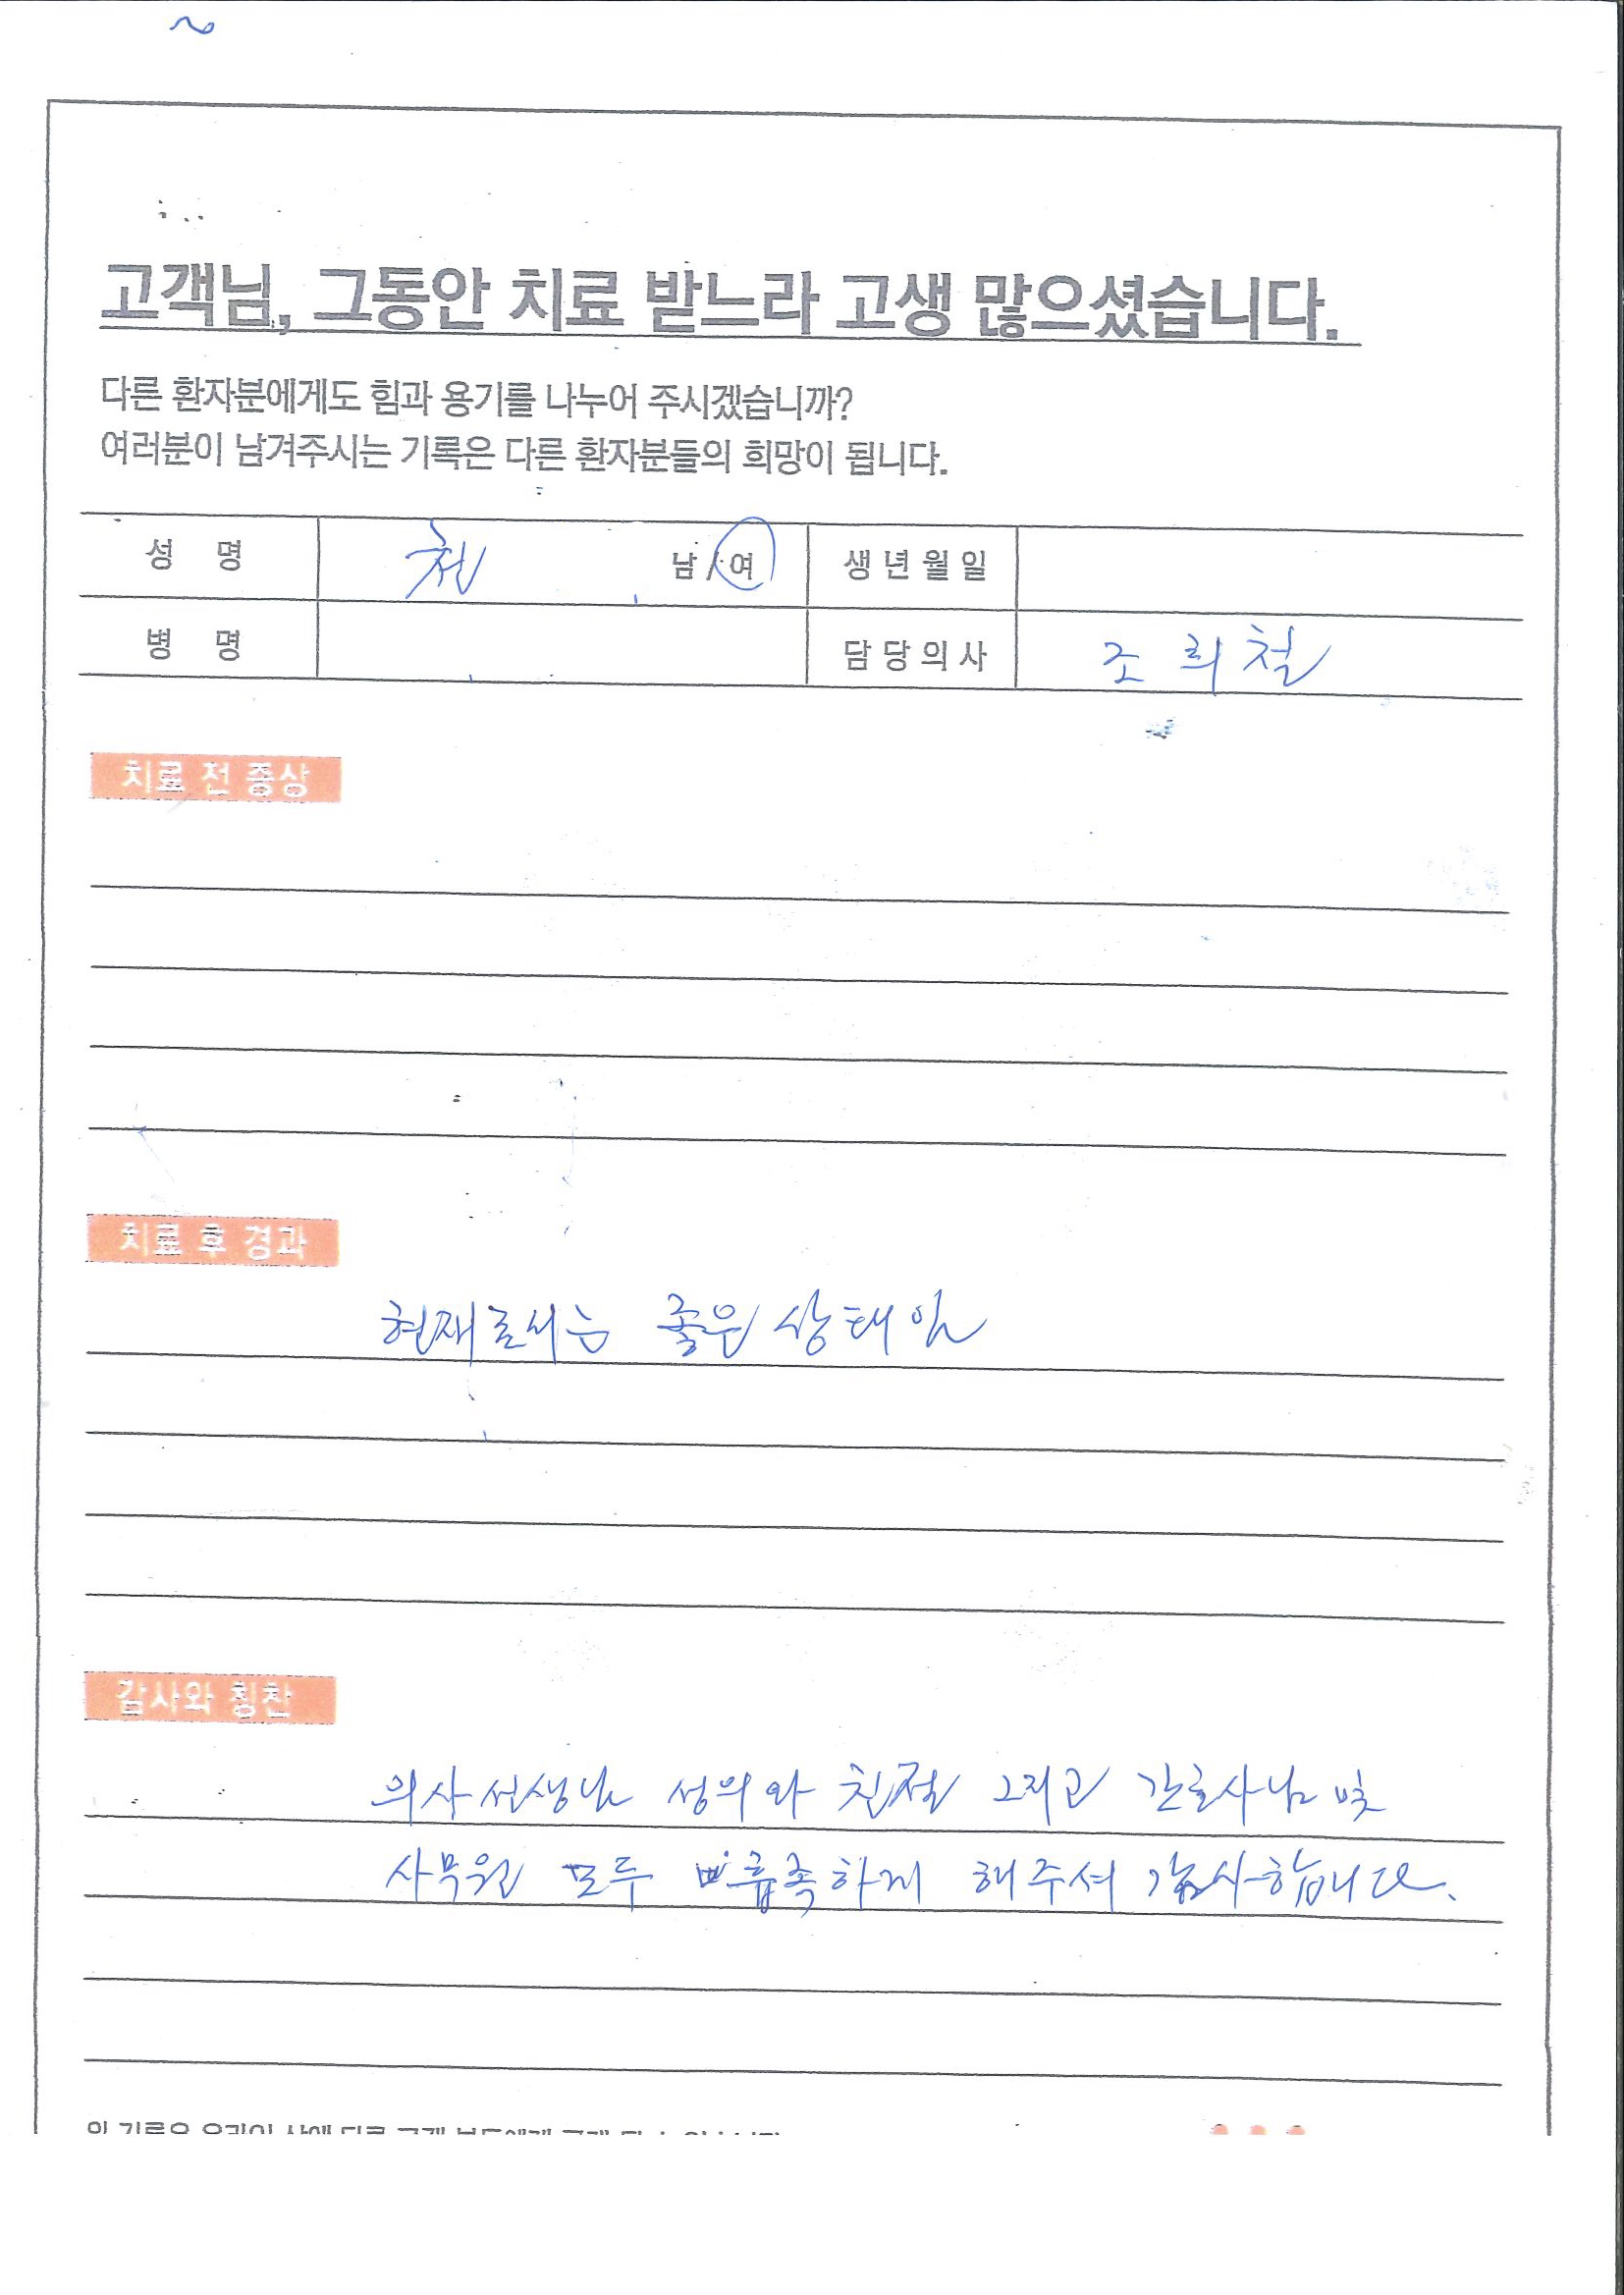 고객님, 그동안 치료 받느라 고생 많으셨습니다.
다른 환자분에게도 힘과 용기를 나누어 주시겠습니까?
여러분이 남겨주시는 기록은 다른 환자분들의 희망이 됩니다.
성 명 천 남 / 여 생년월일
병 명 담당의사 조희철
치료 전 증상
치료 후 경과
현재로서는 좋은 상태임
감사와 칭찬
의사선생님 성의와 친절 그리고 간호사님 및
사무원 모두 흡족하게 해주셔 감사합니다.